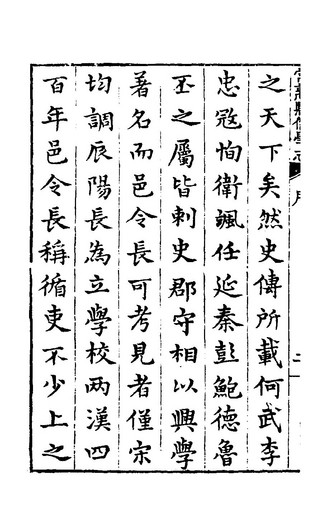 之天下矣然史傳所載何武李
忠寇恂衛颯任延秦彭鮑德魯
丕之屬皆刺史郡守相以興學
著名而邑令長可考見者僅宋
均調辰陽長為立學校兩漢四
百年邑令長稱循吏不少上之